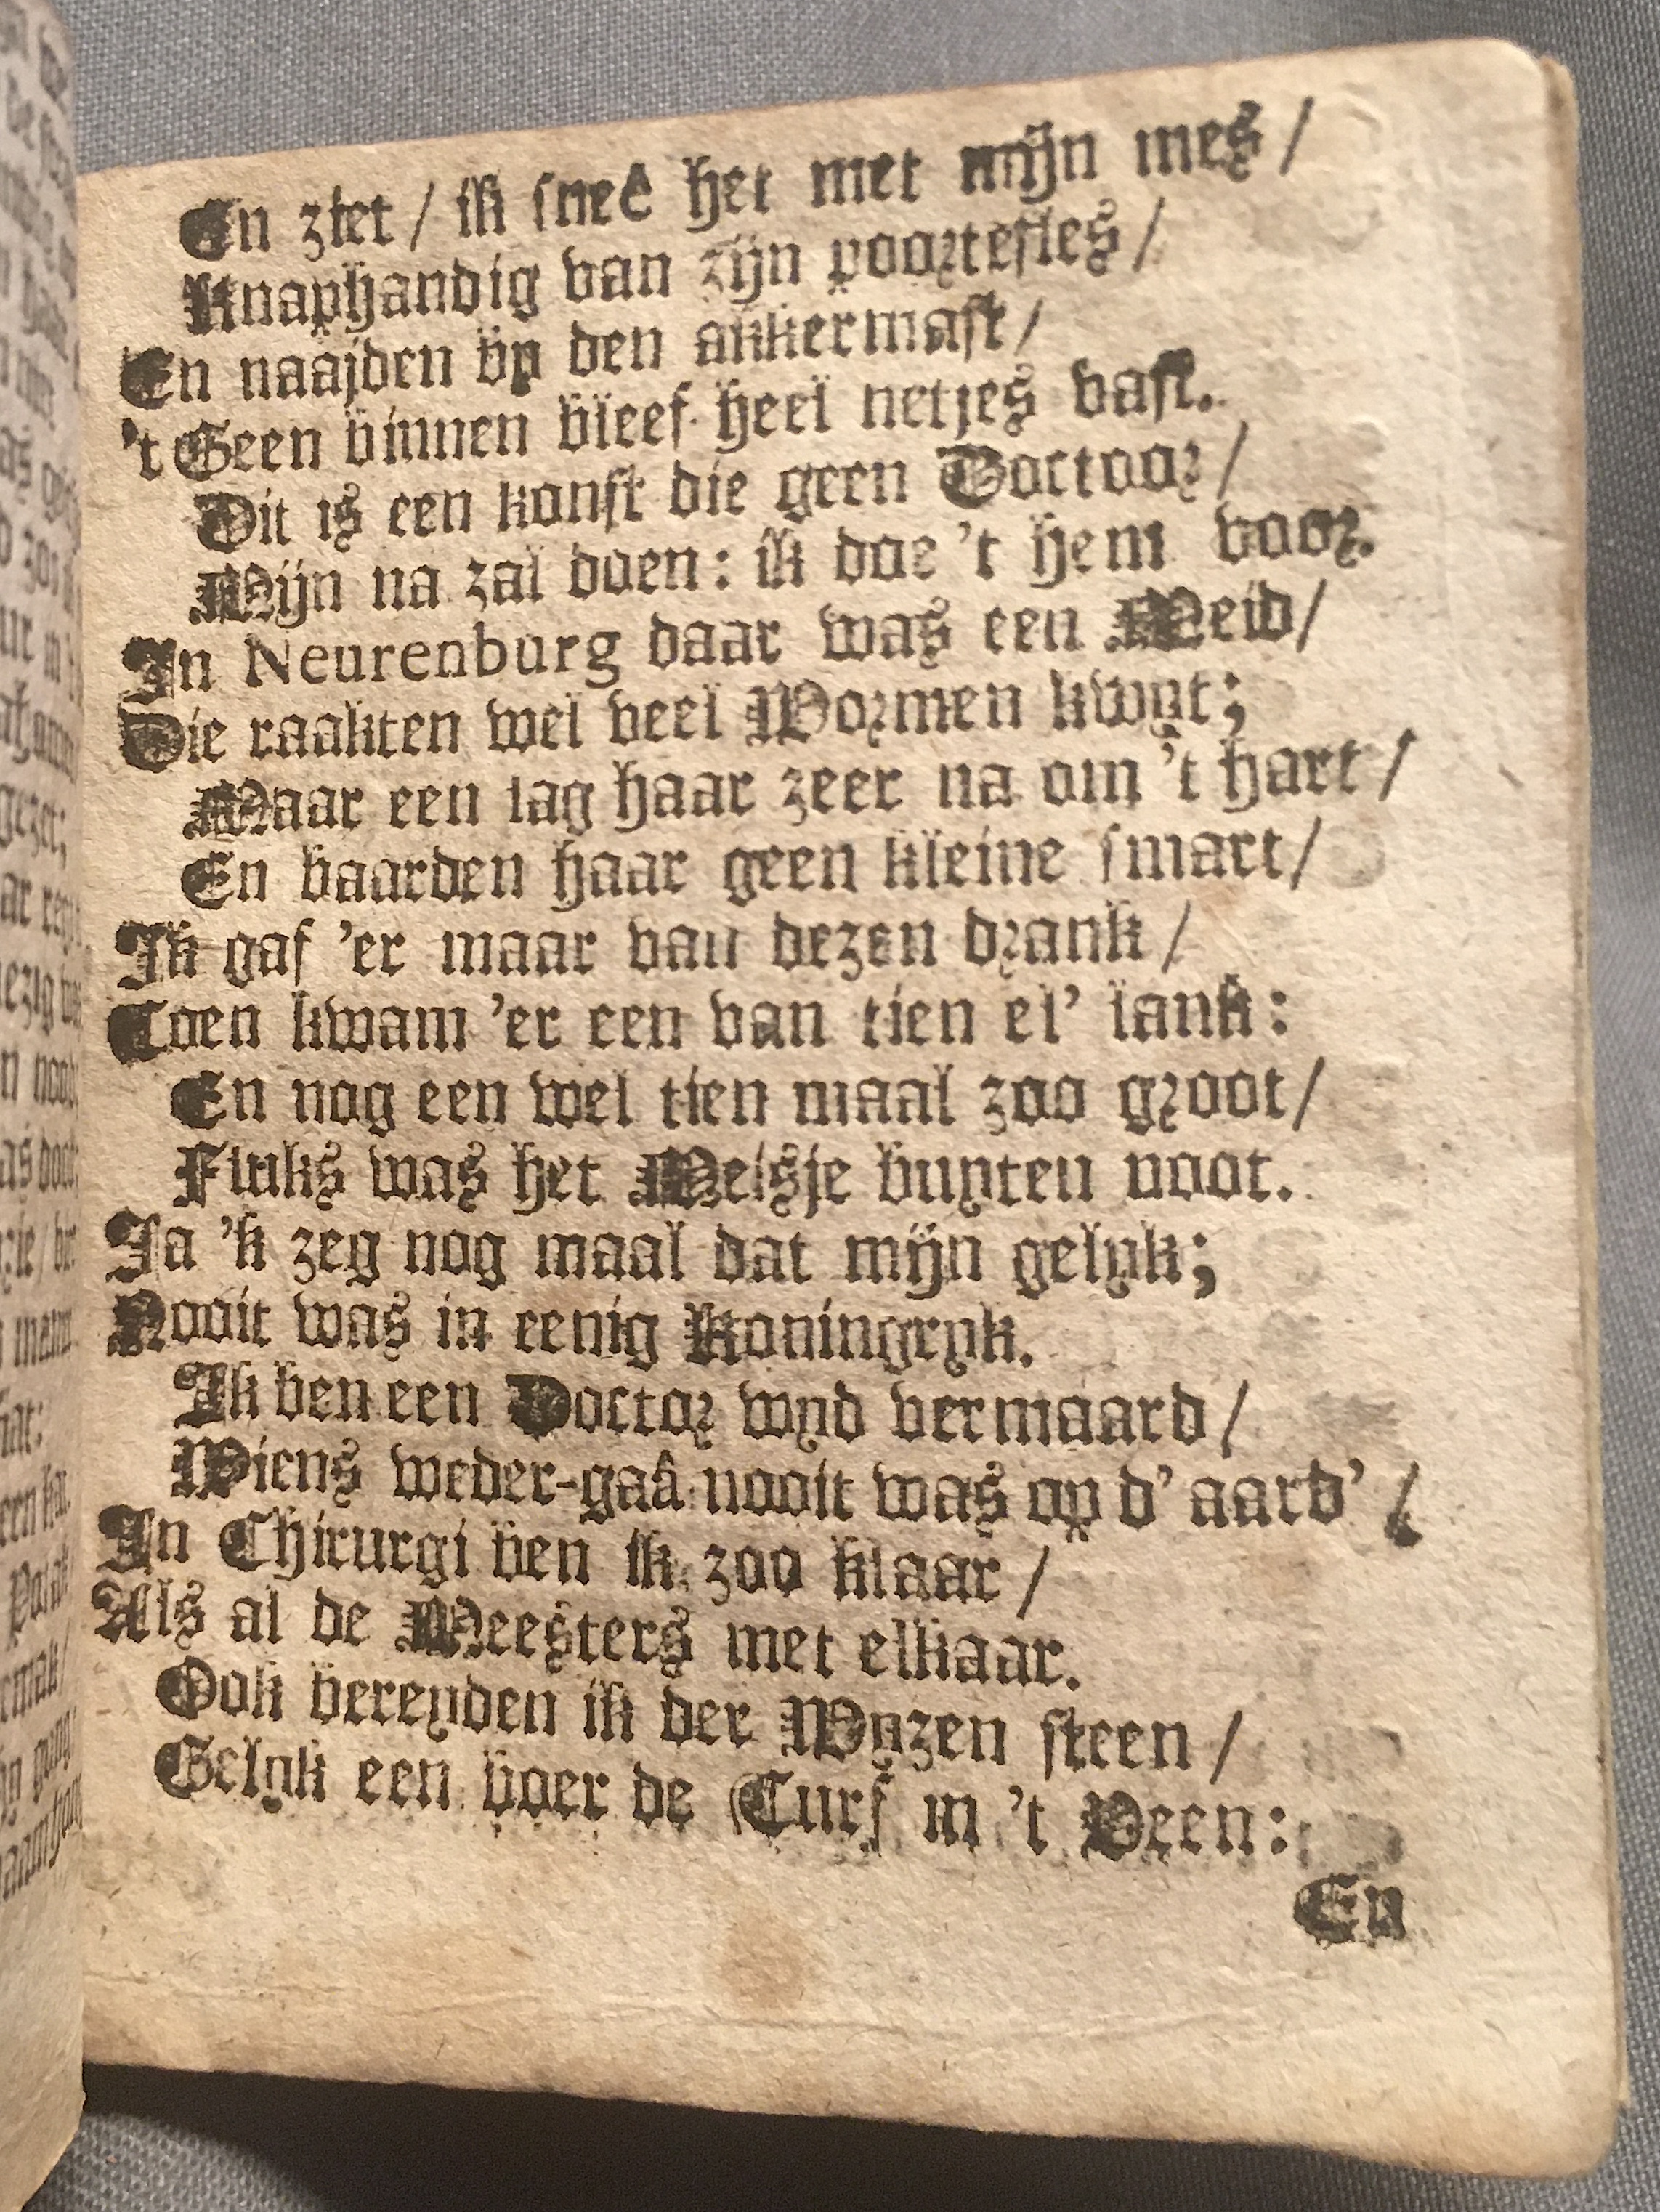 En ziet / ik sneê het met mijn mes /
Knaphandig van zijn poortesles /
En naajden op den akkermast /
't Geen binnen bleef heel netjes vast.
Dit is een konst die geen Doctoor /
Mijn na zal doen: ik doe 't hem voor.
In Neurenburg daar was een Meid /
Die raakten wel veel Wormen kwyt;
Maar een lag haar zeer na om 't hart /
En baarden haar geen kleine smart /
Ik gaf 'er maar van dezen drank /
Toen kwam 'er een van tien el' lank:
En nog een wel tien maal zoo groot /
Fluks was het Meisje buyten noot.
Ja 'k zeg nog maal dat mijn gelyk;
Nooit was in eenig Koningryk.
Ik ben een Doctor wyd vermaard /
Wiens weder-gaâ nooit was op d' aard' /
In Chirurgi ben ik zoo klaar /
Als al de Meesters met elkaar.
Ook bereyden ik der Wyzen steen /
Gelyk een boer de Turf in 't Veen:
En